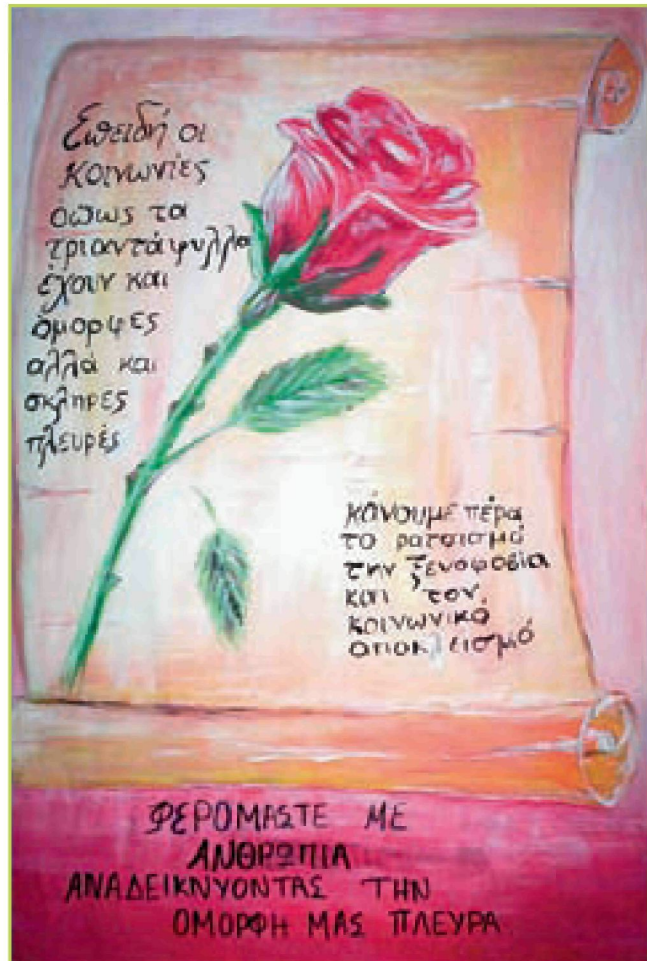 Επειδή οι
κοινωνίες
όπως τα
τριαντάφυλλα
έχουν και
όμορφες
αλλά και
σκληρές
πλευρές
κάνουμε πέρα
το ρατσισμό
την ξενοφοβία
και τον
κοινωνικό
αποκλεισμό
ΦΕΡΟΜΑΣΤΕ ΜΕ
ΑΝΘΡΩΠΙΑ
ΑΝΑΔΕΙΚΝΥΟΝΤΑΣ ΤΗΝ
ΟΜΟΡΦΗ ΜΑΣ ΠΛΕΥΡΑ